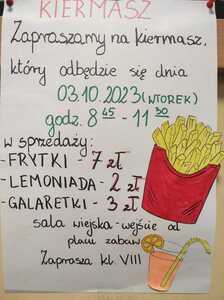 KIERMASZ
Zapraszamy na kiermasz,
który odbędzie się dnia
03.10.2023 (WTOREK)
godz. 8 45 - 11 30
w sprzedaży:
- FRYTKI - 7 zł
- LEMONIADA - 2 zł
- GALARETKI - 3 zł
sala wiejska - wejście od
placu zabaw
Zaprasza kl. VIII